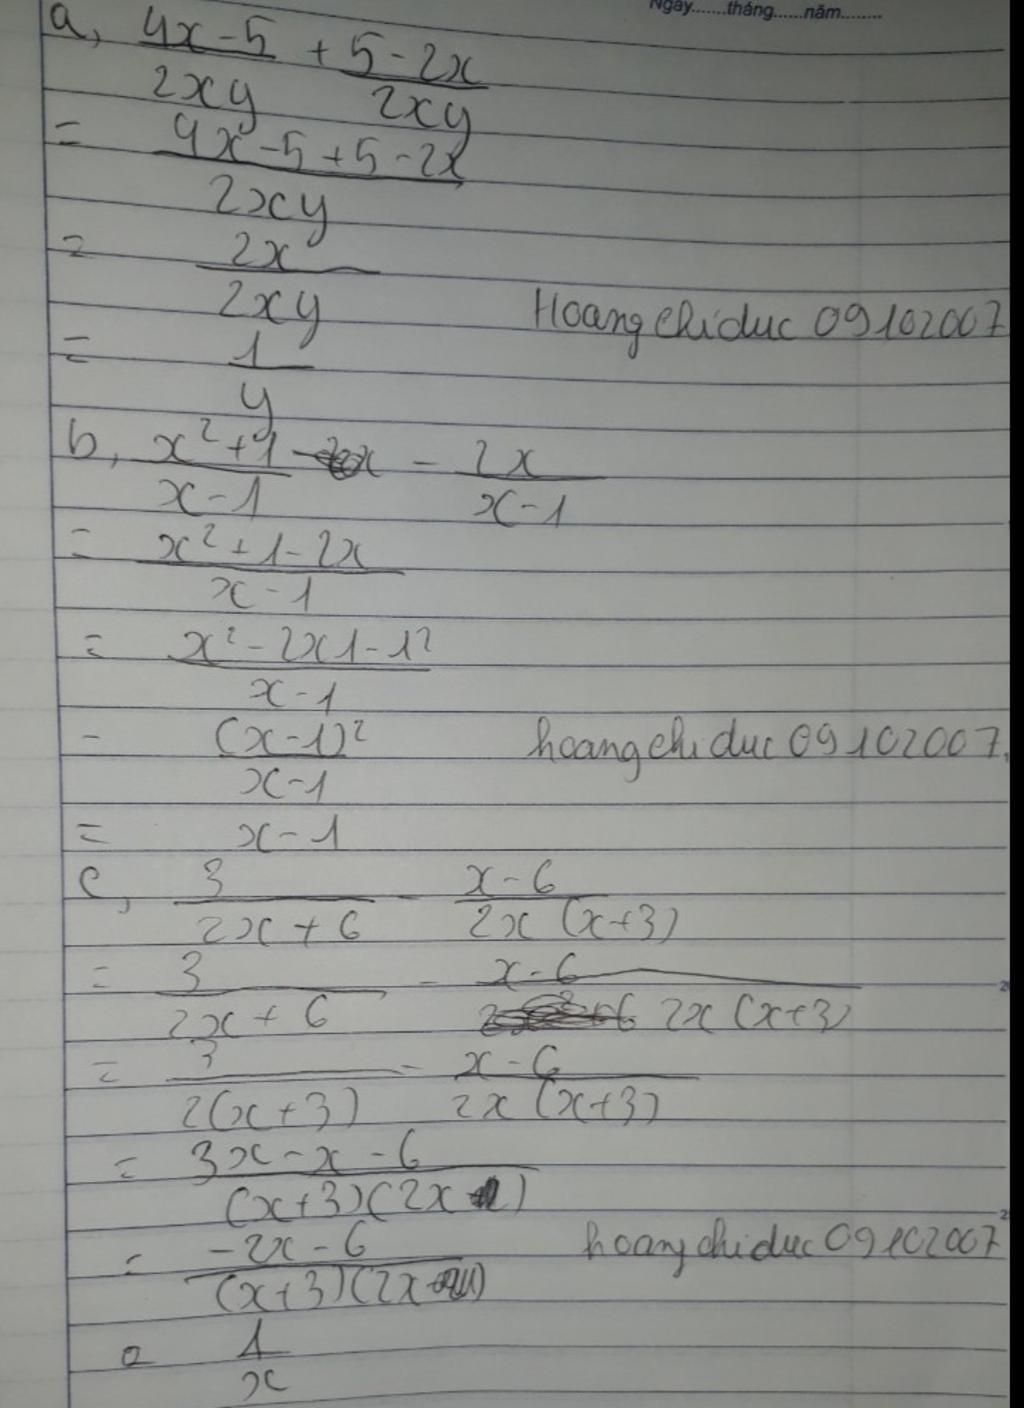 Ngày.......tháng......năm........
a, 4x-5/2xy + 5-2x/2xy
= 4x-5+5-2x/2xy
= 2x/2xy
Hoangchiduc 09102007
= 1/y
b, x²+1/x-1 - 2x/x-1
= x²+1-2x/x-1
= x²-2x1-1²/x-1
- (x-1)²/x-1
hoangchiduc 09102007.
= x-1
c, 3/2x+6 - x-6/2x(x+3)
= 3/2x+6 - x-6/2x(x+3)
= 3/2(x+3) - x-6/2x(x+3)
= 3x-x-6/(x+3)(2x)
= -2x-6/(x+3)(2x)
hoangchiduc 09102007
= 1/x